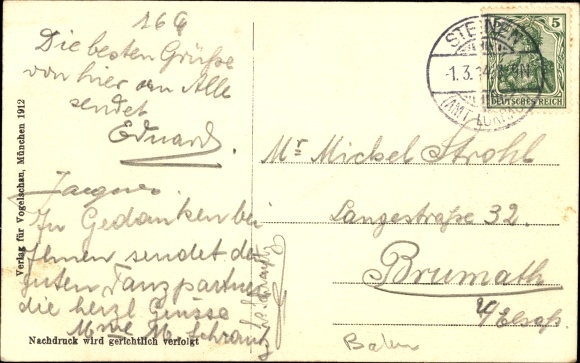 166
Die besten Grüße
von hier an Alle
sendet
Eduard.
Jacques.
In Gedanken bei
Ihnen sendet der
guten Tanzpartner
die herzl. Grüsse
Mme M. Schrantz
Nachdruck wird gerichtlich verfolgt
Verlag für Vogelschau, München 1912
STEINEN
-1.3.14
(AMT LÖRRACH
5
DEUTSCHES REICH
Mr Mickel Strohl
Langestraße 32.
Brumath
i/Elsaß.
Baden